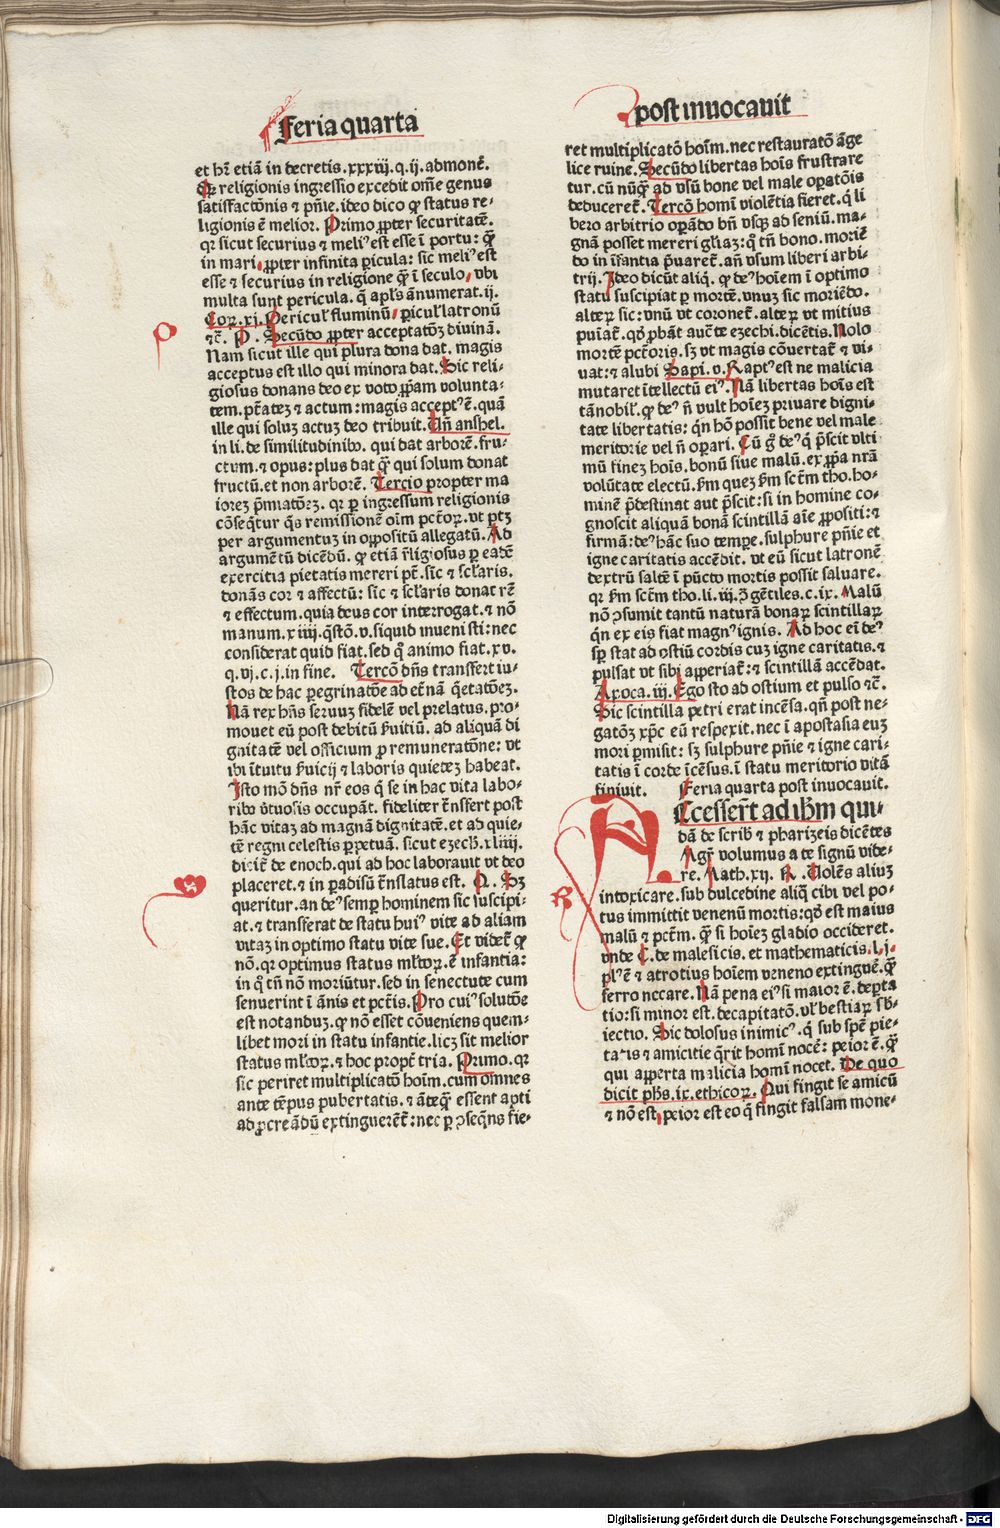 Feria quarta
et hr̄ etiā in decretis.xxxiij.q.ij.admonet̄.
Qꝛ religionis ingressio excedit om̄e genus
satisfactōnis & pn̄ie.ideo dico ꝙ status re⸗
ligionis ē melior. Primo ꝓpter securitatē.
qꝛ sicut securius & meliꝰ est esse ī portu: q̄ꝫ
in mari, ꝓpter infinita ꝑicula: sic meliꝰ est
esse & securius in religione q̄ꝫ ī seculo, vbi
multa sunt pericula. q̄ apl̄s ānumerat.ij.
Coꝝ.xj. Pericul̄ fluminū, ꝑicul̄ latronū
⁊c̄. P. Secūdo ꝓpter acceptatōꝫ diuinā.
Nam sicut ille qui plura dona dat. magis
acceptus est illo qui minora dat. Sic reli⸗
giosus donans deo ex voto ꝓpꝛiam volunta⸗
tem. pt̄ateꝫ & actum: magis acceptꝰ ē. quā
ille qui soluꝫ actuꝫ deo tribuit. Un̄ anshel.
in li. de similitudinibꝰ. qui dat arborē. fru⸗
ctum. & opus: plus dat q̄ꝫ qui solum donat
fructū. et non arborē. Tercio propter ma
ioreꝫ p̄miatōeꝫ. qꝛ ꝑ ingressum religionis
cōseq̄tur q̄s remissionē oīm pct̄oꝝ. vt ptꝫ
per argumentuꝫ in oppositū allegatū. Ad
argumētū dicēdū. ꝙ etiā r̄ligiosus ꝑ eadē
exercitia pietatis mereri pt̄. sic & scl̄aris.
donās cor & affectū: sic & scl̄aris donat rē
& effectum. quia deus cor interrogat. & nō
manum. xiiij. q̄stō. v. siquid inueni sti: nec
considerat quid fiat. sed qͦ animo fiat. xv.
q. vj. c. j. in fine. Tercō dn̄s transfert iu⸗
stos de hac peregrinatōe ad et̄nā q̄etatōeꝫ.
Nā rex hn̄s seruuꝫ fidelē vel prelatus. pro⸗
mouet eū post debitū s̄uitiū. ad aliquā di
gnitatē vel officium pro remuneratōne: vt
ibi ītuitu s̄uicij & laboris quieteꝫ habeat.
Isto mō dn̄s nr̄ eos q̄ se in hac vita labo⸗
ribꝰ v̓tuosis occupāt. fideliter t̄nsfert post
hāc vitaꝫ ad magnā dignitatē. et ad quie⸗
tē regni celestis ꝑpetuā. sicut ezech. xliiij.
dicit̄ de enoch. qui ad hoc laborauit vt deo
placeret. & in ꝑadisū t̄nslatus est. Q. Sꝫ
queritur. an deꝰ semꝑ hominem sic suscipi⸗
at. & transferat de statu huiꝰ vite ad aliam
vitaꝫ in optimo statu vite sue. Et videt̄ ꝙ
nō. qꝛ optimus status ml̄toꝝ. ē infantia:
in qͦ tn̄ nō moriūtur. sed in senectute cum
senuerint ī ānis et pctīs. Pro cuiꝰ solutōe
est notanduꝫ. ꝙ nō esset cōueniens quem⸗
libet mori in statu infantie. licꝫ sit melior
status ml̄toꝝ. & hoc propt̄ tria. Primo. qꝛ
sic periret multiplicatō hoīm. cum omnes
ante tēpus pubertatis. & āteqͣ essent apti
ad ꝓcreādū extinguerēt̄: nec ꝑ ꝯseqn̄s fie⸗
post inuocauit
ret multiplicatō hoīm. nec restauratō āge
lice ruine. Secūdo libertas hoīs frustrare
tur. cū nūqͣ ad vsū bone vel male oꝑatōis
deduceret̄. Tercō homī violētia fieret. q̄ li
bero arbitrio oꝑādo bn̄ vsqꝫ ad seniū. ma⸗
gnā posset mereri gl̄iaꝫ: qͦ tn̄ bono. moriē
do in īfantia p̄uaret̄. an̄ vsum liberi arbi⸗
trij. Ideo dicūt aliq̄. ꝙ deꝰ hoīem ī optimo
statu suscipiat ꝑ mortē. vnuꝫ sic moriēdo.
alteꝝ sic: vnū vt coronet̄. alteꝝ vt mitius
puīat̄. qd̄ ꝓbāt auct̄e ezechi. dicētis. Nolo
mortē pctōris. sꝫ vt magis cōuertat̄ & vi⸗
uat: & alubi Sapi. v. Raptꝰ est ne malicia
mutaret ītellectū eiꝰ. Nā libertas hoīs est
tā nobil̄. ꝙ deꝰ n̄ vult hoīeꝫ priuare digni⸗
tate libertatis: qn̄ hō possit bene vel male
meritorie vel n̄ oꝑari. Cū g̊ deꝰ q̄ p̄scit vlti
mū fineꝫ hoīs. bonū siue malū. ex ꝓpꝛa nr̄ā
volūtate electū. s̄m queꝫ s̄m sctm̄ tho. ho⸗
minē p̄destinat aut p̄scit: si in homine co⸗
gnoscit aliquā bonā scintillā aīe ꝓpositi: &
firmā: deꝰ hāc suo tempe. sulphure pn̄ie et
igne caritatis accēdit. vt eū sicut latronē
dextrū saltē ī pūcto mortis possit saluare.
qꝛ s̄m sctm̄ tho. li. iij. ꝯ gētiles. c. ix. Malū
nō ꝯsumit tantū naturā bonaꝝ scintillaꝝ
qn̄ ex eis fiat magnꝰ ignis. Ad hoc ei̅ deꝰ
sꝑ stat ad ostiū cordis cuꝫ igne caritatis. &
pulsat vt sibi aperiat̄: & scintillā accēdat.
Apoca. iij. Ego sto ad ostium et pulso ⁊c̄.
Sic scintilla petri erat incēsa. qn̄ post ne⸗
gatōꝫ xp̄c eū respexit. nec ī apostasia euꝫ
mori ꝑmisit: sꝫ sulphure pn̄ie & igne cari⸗
tatis ī corde īcēsus. ī statu meritorio vitā
finiuit. Feria quarta post inuocauit.
Accesserūt ad ihm̄ qui⸗
dā de scribꝭ & pharizeis dicētes
Magr̄ volumus a te signū vide⸗
re. Math. xij. R. Uolēs aliuꝫ
intoxicare. sub dulcedine aliqͣ cibi vel po⸗
tus immittit venenū mortis: qd̄ est maius
malū & pctm̄. q̄ꝫ si hoīeꝫ gladio occideret.
vnde C. de maleficis. et mathematicis. l. j.
plꝰ ē & atrotius hoīem veneno extinguē. q̄ꝫ
ferro necare. Nā pena eiꝰ si maior ē. deꝑta
tio: si minor est. decapitatō. vl̄ bestiaꝝ sb̄⸗
iectio. Sic dolosus inimicꝰ. q̄ sub spē pie⸗
tatis & amicitie q̄rit homī nocē: peior ē. q̄ꝫ
qui aꝑta malicia homī nocet. De quo
dicit ph̄s. ix. ethicoꝝ. Qui fingit se amicū
& nō est, peior est eo q̄ fingit falsam mone⸗
Digitalisierung gefördert durch die Deutsche Forschungsgemeinschaft - DFG